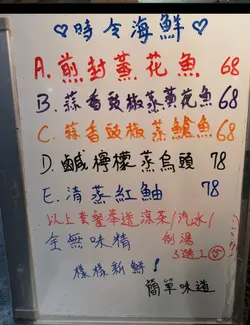 ♡時令海鮮♡
A. 煎封黃花魚 68
B. 蒜香豉椒蒸黃花魚 68
C. 蒜香豉椒蒸鱠魚 68
D. 鹹檸檬蒸烏頭 78
E. 清蒸紅鮋 78
以上套餐奉送涼茶/汽水/
例湯
3選1
全無味精
樣樣新鮮!
簡單味道